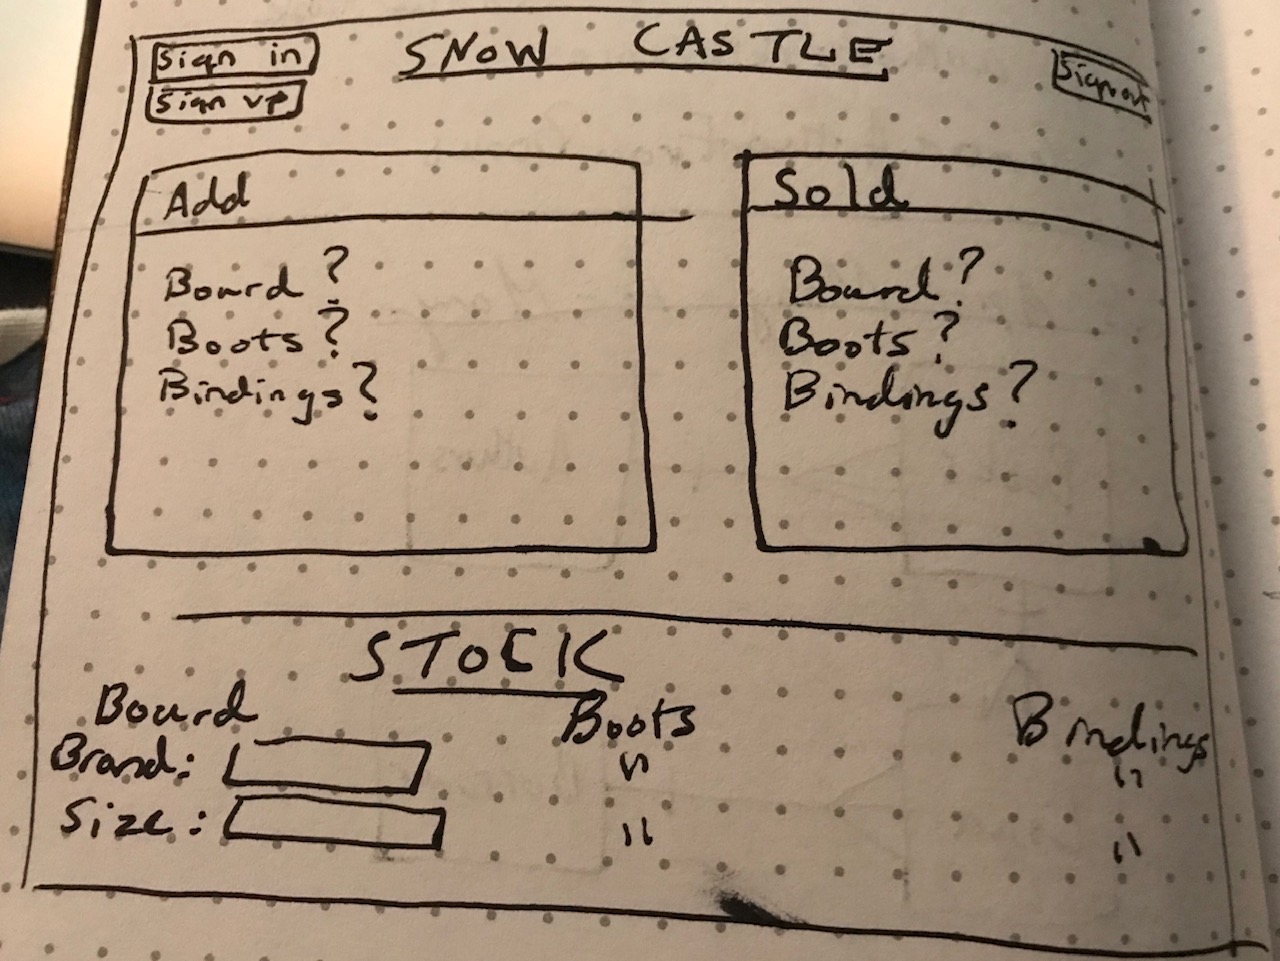 Sign in
SNOW CASTLE
Sign out
Sign up
Add
Board?
Boots?
Bindings?
Sold
Board?
Boots?
Bindings?
STOCK
Board
Brand:
Size:
Boots
"
"
Bindings
"
"